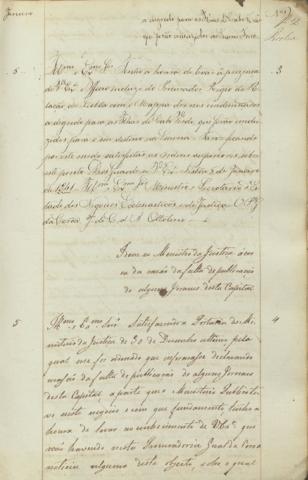 Janeiro
a degredo para as Ilhas de Cabo Verde
que forão
5
3
Illmo Exmo Snr Tenho a honra de levar á presença
de V. Exa o Officio incluzo do Procurador Regio da Re-
lação de Lisboa com o Mappa dos reos condemnados
a degredo para as Ilhas de Cabo Verde, que forão condu-
zidos para o seu destino na Escuna Ficando
por este modo satisfeitas as ordens superiores, sobre
este objecto. Deos Guarde a V. Exa Lisboa 5 de Janeiro
de 1841. Illmo Exmo Snr Ministro e Secretario d'Es-
tado dos Negocios Ecclesiasticos e de Justiça. O P. G.
da Coroa, J. de C. d'A. Ottolini
Idem ao Ministro da Justiça ácer-
ca da razão da falta de publicação
de alguns Jornaes desta Capital
5
4
Illmo Exmo Snr Satisfazendo a Portaria do Mi-
nisterio da Justiça de 30 de Dezembro ultimo pela
qual me foi ordenado que informasse declarando
a razão da falta de publicação de alguns Jornaes
desta Capital a parte que o Ministerio Publico te-
ve neste negocio e com que fundamento, tenho a
honra de levar ao conhecimento de V. Exa que
não havendo nesta Procuradoria Geral da Coroa
noticia alguma deste objecto, sobre o qual